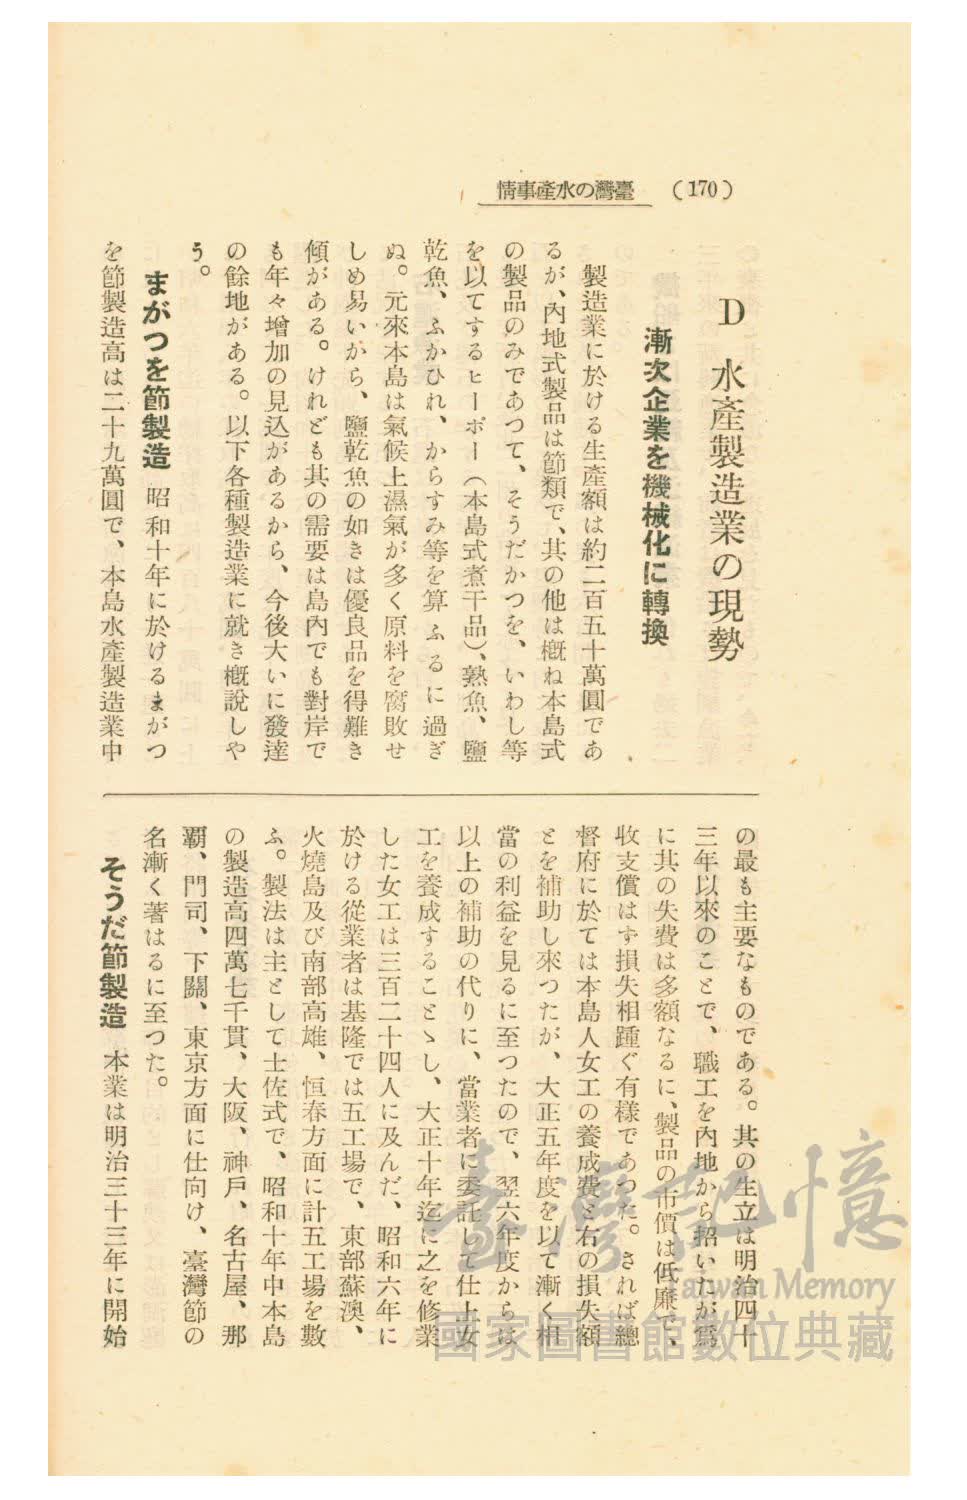 (170)
臺灣の水產事情
D 水產製造業の現勢
漸次企業を機械化に轉換
製造業に於ける生產額は約二百五十萬圓であ
るが、內地式製品は節類で、其の他は概ね本島式
の製品のみであつて、そうだかつを、いわし等
を以てするヒーボー（本島式煮干品）、熟魚、鹽
乾魚、ふかひれ、からすみ等を算ふるに過ぎ
ぬ。元來本島は氣候上濕氣が多く原料を腐敗せ
しめ易いから、鹽乾魚の如きは優良品を得難き
傾がある。けれども其の需要は島內でも對岸で
も年々增加の見込があるから、今後大いに發達
の餘地がある。以下各種製造業に就き槪說しや
う。
まがつを節製造 昭和十年に於けるまがつ
を節製造高は二十九萬圓で、本島水產製造業中
の最も主要なものである。其の生立は明治四十
三年以來のことで、職工を內地から招いたが爲
に其の失費は多額なるに、製品の市價は低廉で、
收支償はず損失相踵ぐ有樣であつた。されば總
督府に於ては本島人女工の養成費と右の損失額
とを補助し來つたが、大正五年度を以て漸く相
當の利益を見るに至つたので、翌六年度からは
以上の補助の代りに、當業者に委託して仕上女
工を養成することゝし、大正十年迄に之を修業
した女工は三百二十四人に及んだ、昭和六年に
於ける從業者は基隆では五工場で、東部蘇澳、
火燒島及び南部高雄、恒春方面に計五工場を數
ふ。製法は主として土佐式で、昭和十年中本島
の製造高四萬七千貫、大阪、神戶、名古屋、那
覇、門司、下關、東京方面に仕向け、臺灣節の
名漸く著はるに至つた。
そうだ節製造 本業は明治三十三年に開始
臺灣記憶
Taiwan Memory
國家圖書館數位典藏